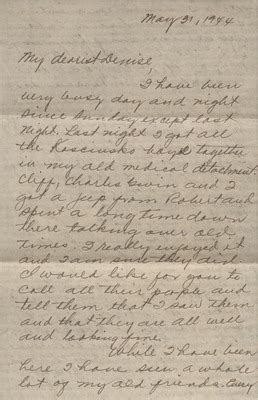 May 31, 1944
My dearest Denise,
I have been
very busy day and night
since Sunday except last
night. Last night I got all
the Rosciusko boys together
in my old medical detachment.
Cliff, Charles Gwin and I
got a jeep from Robert and
spent a long time down
there talking over old
times. I really enjoyed it
and I am sure they did.
I would like for you to
call all their people and
tell them that I saw them
and that they are all well
and looking fine.
While I have been
here I have seen a whole
lot of my old friends.